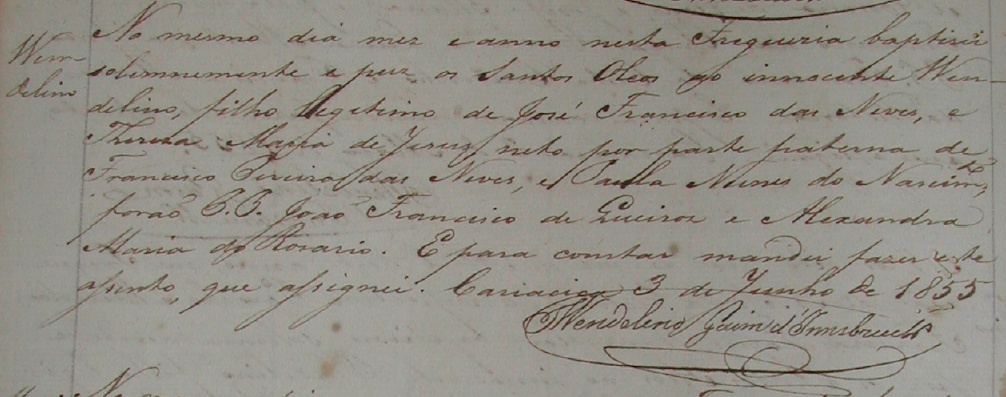 Wen-
delino
No mesmo dia mez e anno nesta Freguezia baptizei
solemnemente e puz os Santos Oleos ao innocente Wen-
delino, filho legitimo de José Francisco das Neves, e
Thereza Maria de Jesus, neto por parte paterna de
Francisco Pereira das Neves, e Paula Nunes do Nascim.to,
forão P.P. João Francisco de Queiroz e Alexandra
Maria do Rosario. E para constar mandei fazer este
assento, que assignei. Cariacica 3 de Junho de 1855
Wendelino Gaim d'Innsbruck